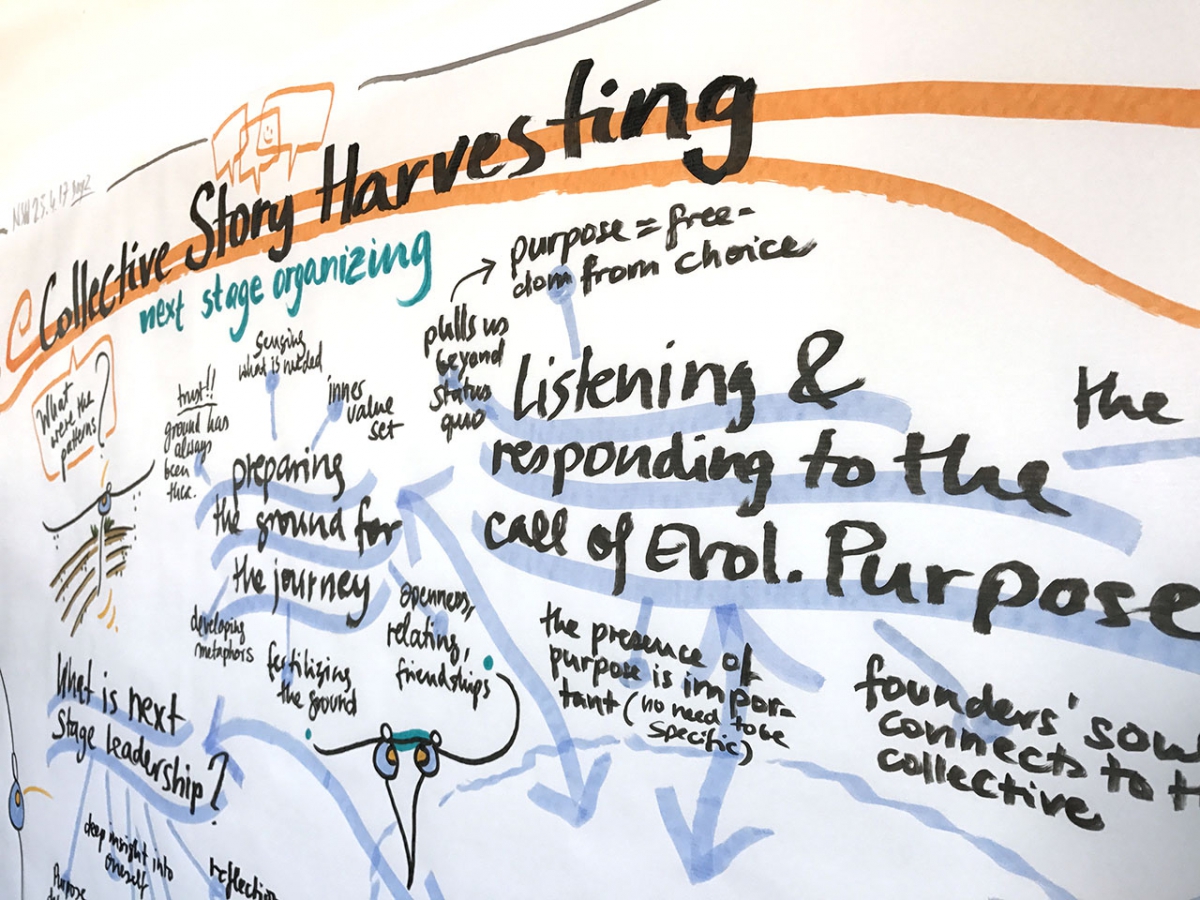 NW 25.4.17 Day 2
Collective Story Harvesting
next stage organizing
What
were the
patterns?
trust!!
ground has
always
been
there.
sensing
what is needed
inner
value
set
preparing
the ground for
the journey
developing
metaphors
fertilizing
the ground
openness,
relating,
friendships
pulls us
beyond
status
quo
purpose = free-
dom from choice
Listening &
responding to the
call of Evol. Purpose
the presence of
purpose is impor-
tant (no need to be
specific)
the
founders' soul
connects to
collective
What is next
Stage leadership?
deep insight into
oneself
Purpose
reflection